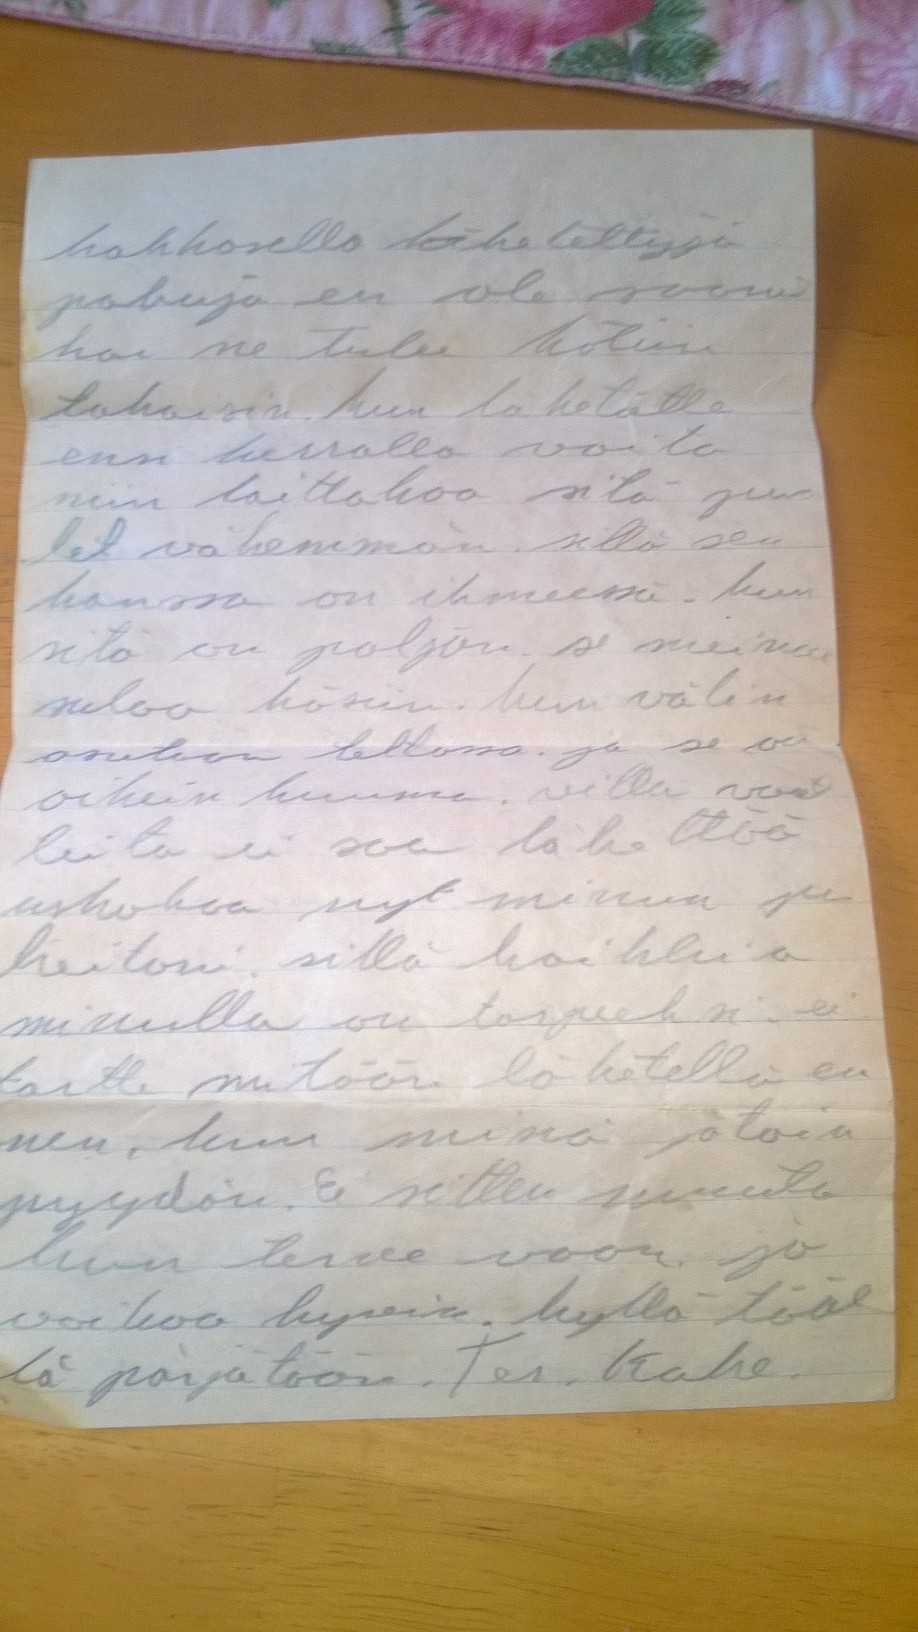 kakkosella lähetettyjä
en ole saanu
kai ne tulee kotiin
takaisin. kun lähetätte
ensi kerralla voita
niin laittakaa sitä puo
let vähemmän. sillä sen
kanssa on ihmeessä. kun
sitä on paljon. se meinaa
sulaa käsiin. kun välin
asutaan teltassa. ja se on
oikein kuuma. villa vaat
teita ei saa lähettää
uskokaa nyt minun pu
heitani. sillä kaikkia
minulla on tarpeeksi. ei
tartte mitään lähetellä en
nen. kun minä jotain
pyydän. Ei sitten muuta
kun terve vaan. ja
voikaa hyvin. kyllä tääl
lä pärjätään. Ter. Kake.